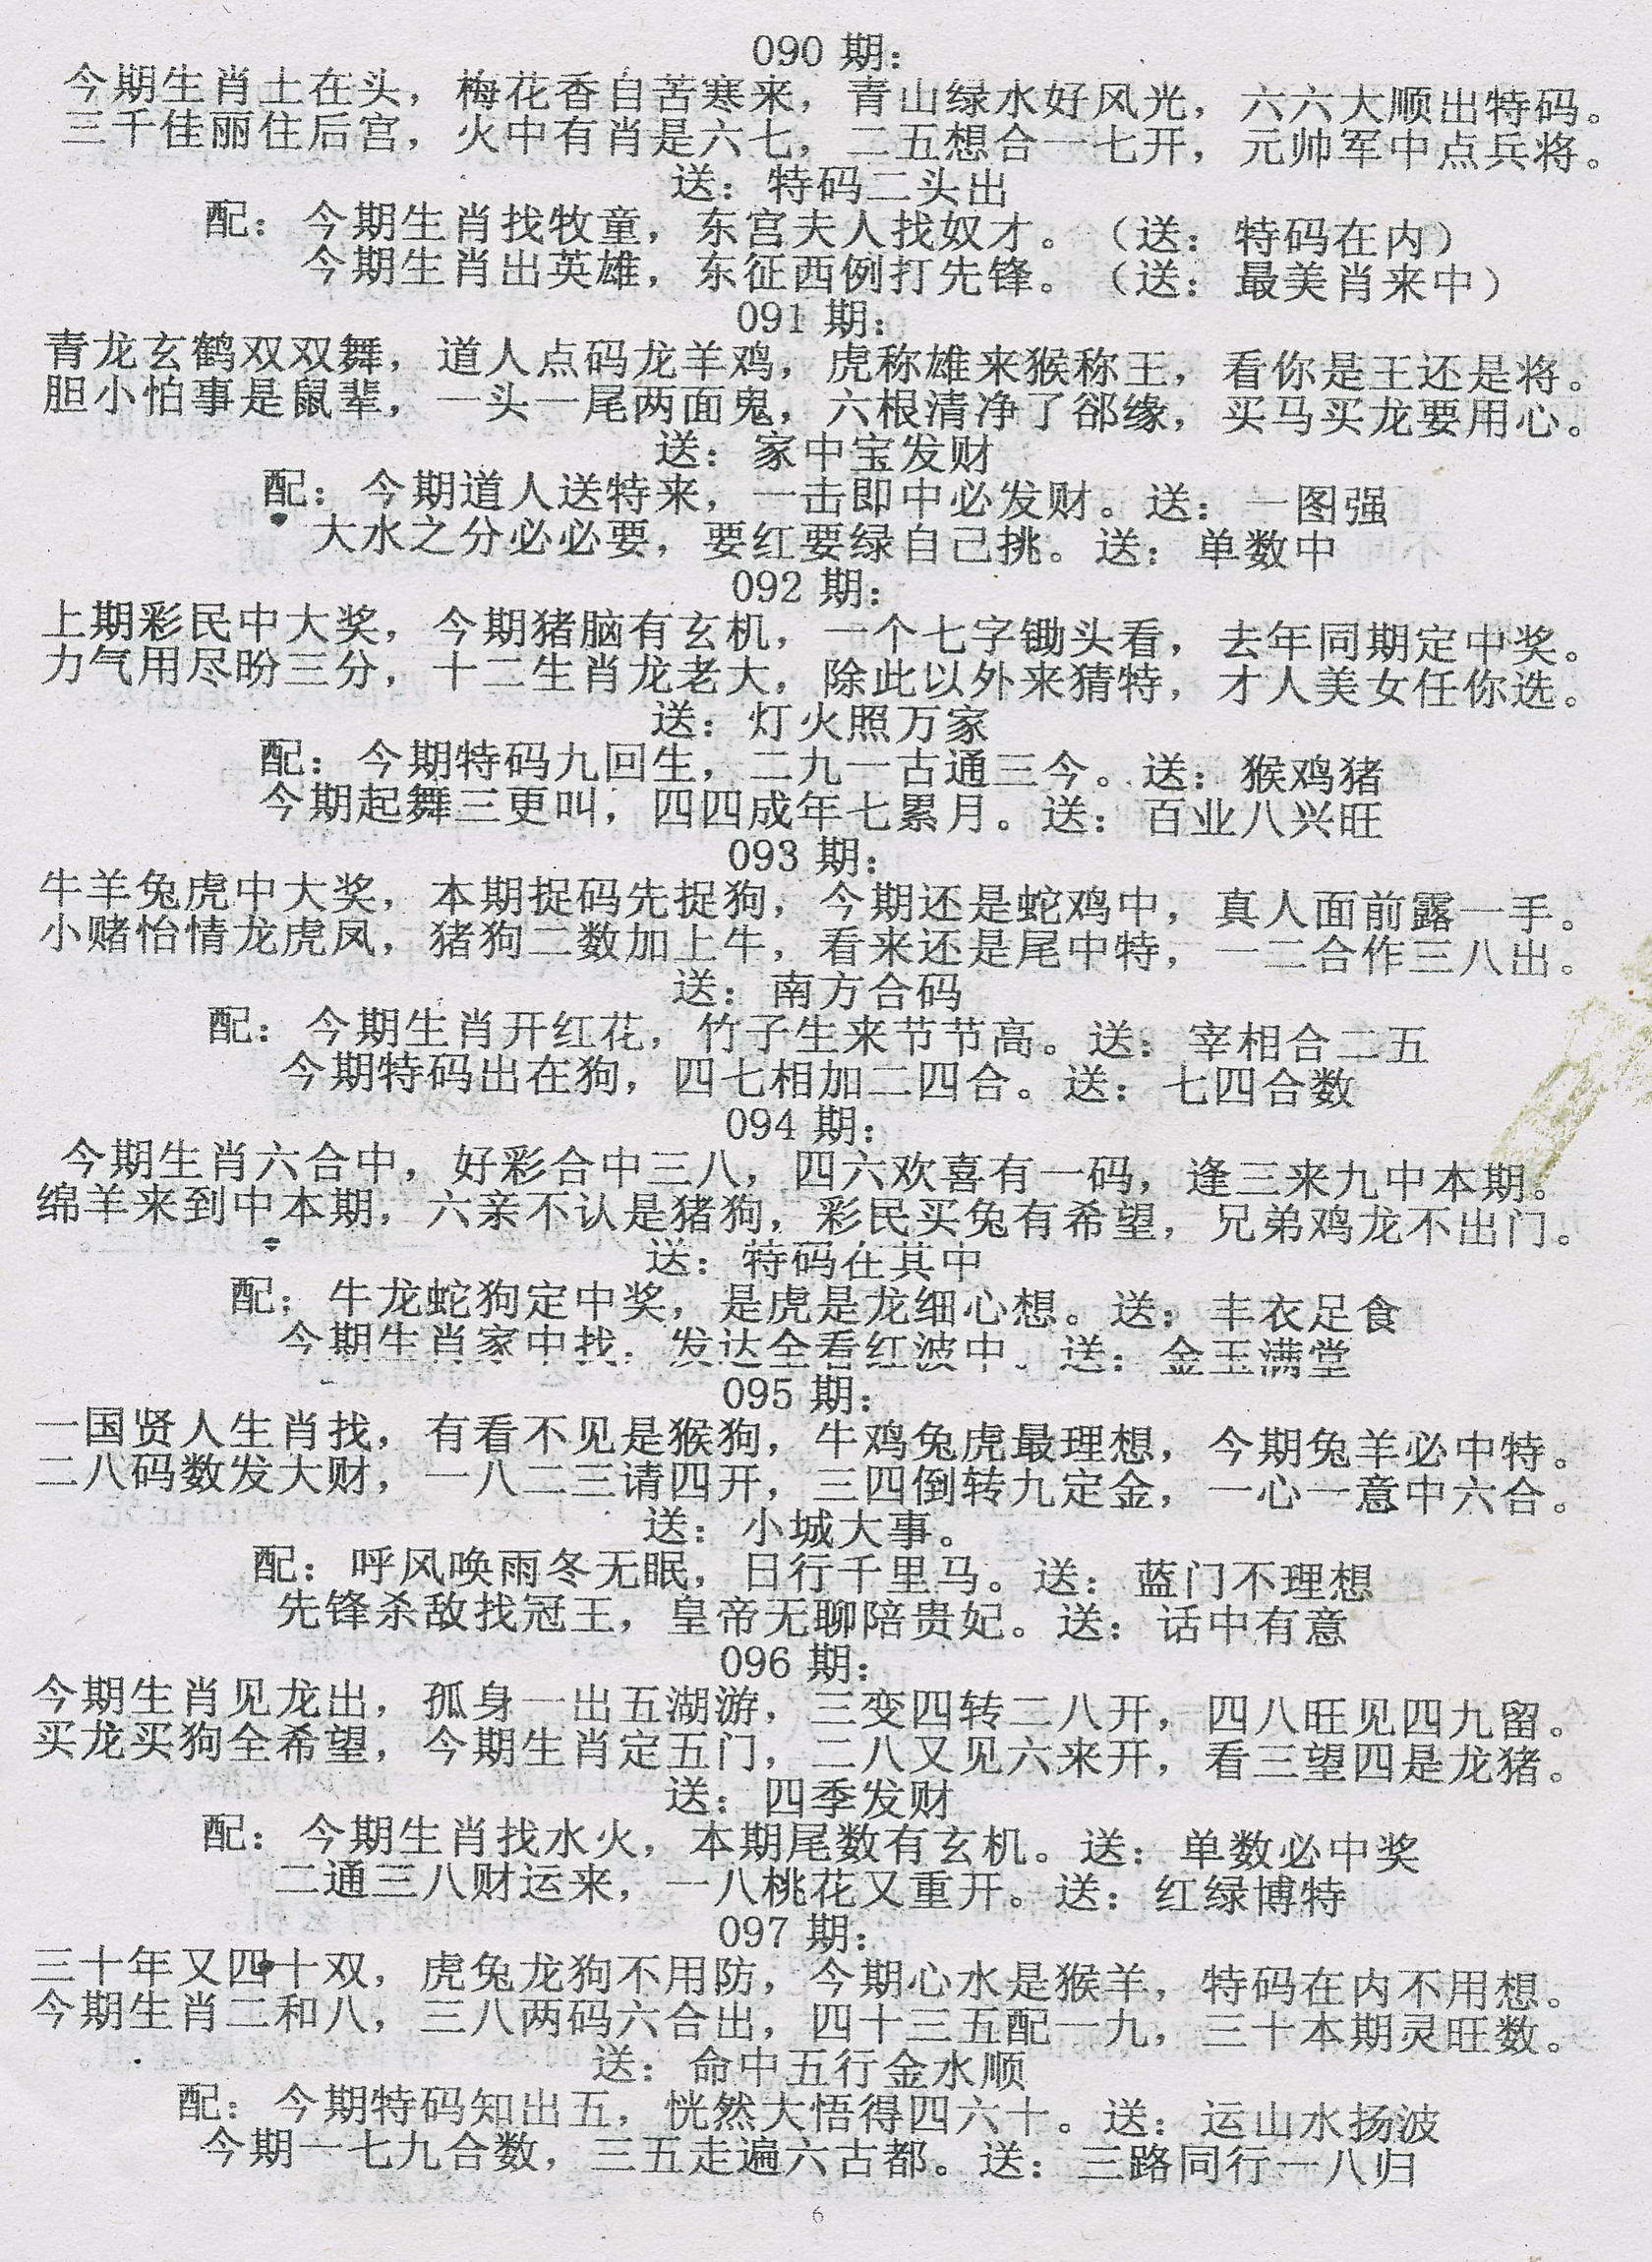 090 期：
今期生肖土在头，梅花香自苦寒来，青山绿水好风光，六六大顺出特码。
三千佳丽住后宫，火中有肖是六七，二五想合一七开，元帅军中点兵将。
送：特码二头出
配：今期生肖找牧童，东宫夫人找奴才。（送：特码在内）
今期生肖出英雄，东征西例打先锋。（送：最美肖来中）
091 期：
青龙玄鹤双双舞，道人点码龙羊鸡，虎称雄来猴称王，看你是王还是将。
胆小怕事是鼠辈，一头一尾两面鬼，六根清净了郤缘，买马买龙要用心。
送：家中宝发财
配：今期道人送特来，一击即中必发财。送：一图强
大水之分必必要，要红要绿自己挑。送：单数中
092 期：
上期彩民中大奖，今期猪脑有玄机，一个七字锄头看，去年同期定中奖。
力气用尽盼三分，十二生肖龙老大，除此以外来猜特，才人美女任你选。
送：灯火照万家
配：今期特码九回生，二九一古通三今。送：猴鸡猪
今期起舞三更叫，四四成年七累月。送：百业八兴旺
093 期：
牛羊兔虎中大奖，本期捉码先捉狗，今期还是蛇鸡中，真人面前露一手。
小赌怡情龙虎凤，猪狗二数加上牛，看来还是尾中特，一二合作三八出。
送：南方合码
配：今期生肖开红花，竹子生来节节高。送：宰相合二五
今期特码出在狗，四七相加二四合。送：七四合数
094 期：
今期生肖六合中，好彩合中三八，四六欢喜有一码，逢三来九中本期。
绵羊来到中本期，六亲不认是猪狗，彩民买兔有希望，兄弟鸡龙不出门。
送：特码在其中
配：牛龙蛇狗定中奖，是虎是龙细心想。送：丰衣足食
今期生肖家中找，发达全看红波中。送：金玉满堂
095 期：
一国贤人生肖找，有看不见是猴狗，牛鸡兔虎最理想，今期兔羊必中特。
二八码数发大财，一八二三请四开，三四倒转九定金，一心一意中六合。
送：小城大事。
配：呼风唤雨冬无眠，日行千里马。送：蓝门不理想
先锋杀敌找冠王，皇帝无聊陪贵妃。送：话中有意
096 期：
今期生肖见龙出，孤身一出五湖游，三变四转二八开，四八旺见四九留。
买龙买狗全希望，今期生肖定五门，二八又见六来开，看三望四是龙猪。
送：四季发财
配：今期生肖找水火，本期尾数有玄机。送：单数必中奖
二通三八财运来，一八桃花又重开。送：红绿博特
097 期：
三十年又四十双，虎兔龙狗不用防，今期心水是猴羊，特码在内不用想。
今期生肖二和八，三八两码六合出，四十三五配一九，三十本期灵旺数。
送：命中五行金水顺
配：今期特码知出五，恍然大悟得四六十。送：运山水扬波
今期一七九合数，三五走遍六古都。送：三路同行一八归
6